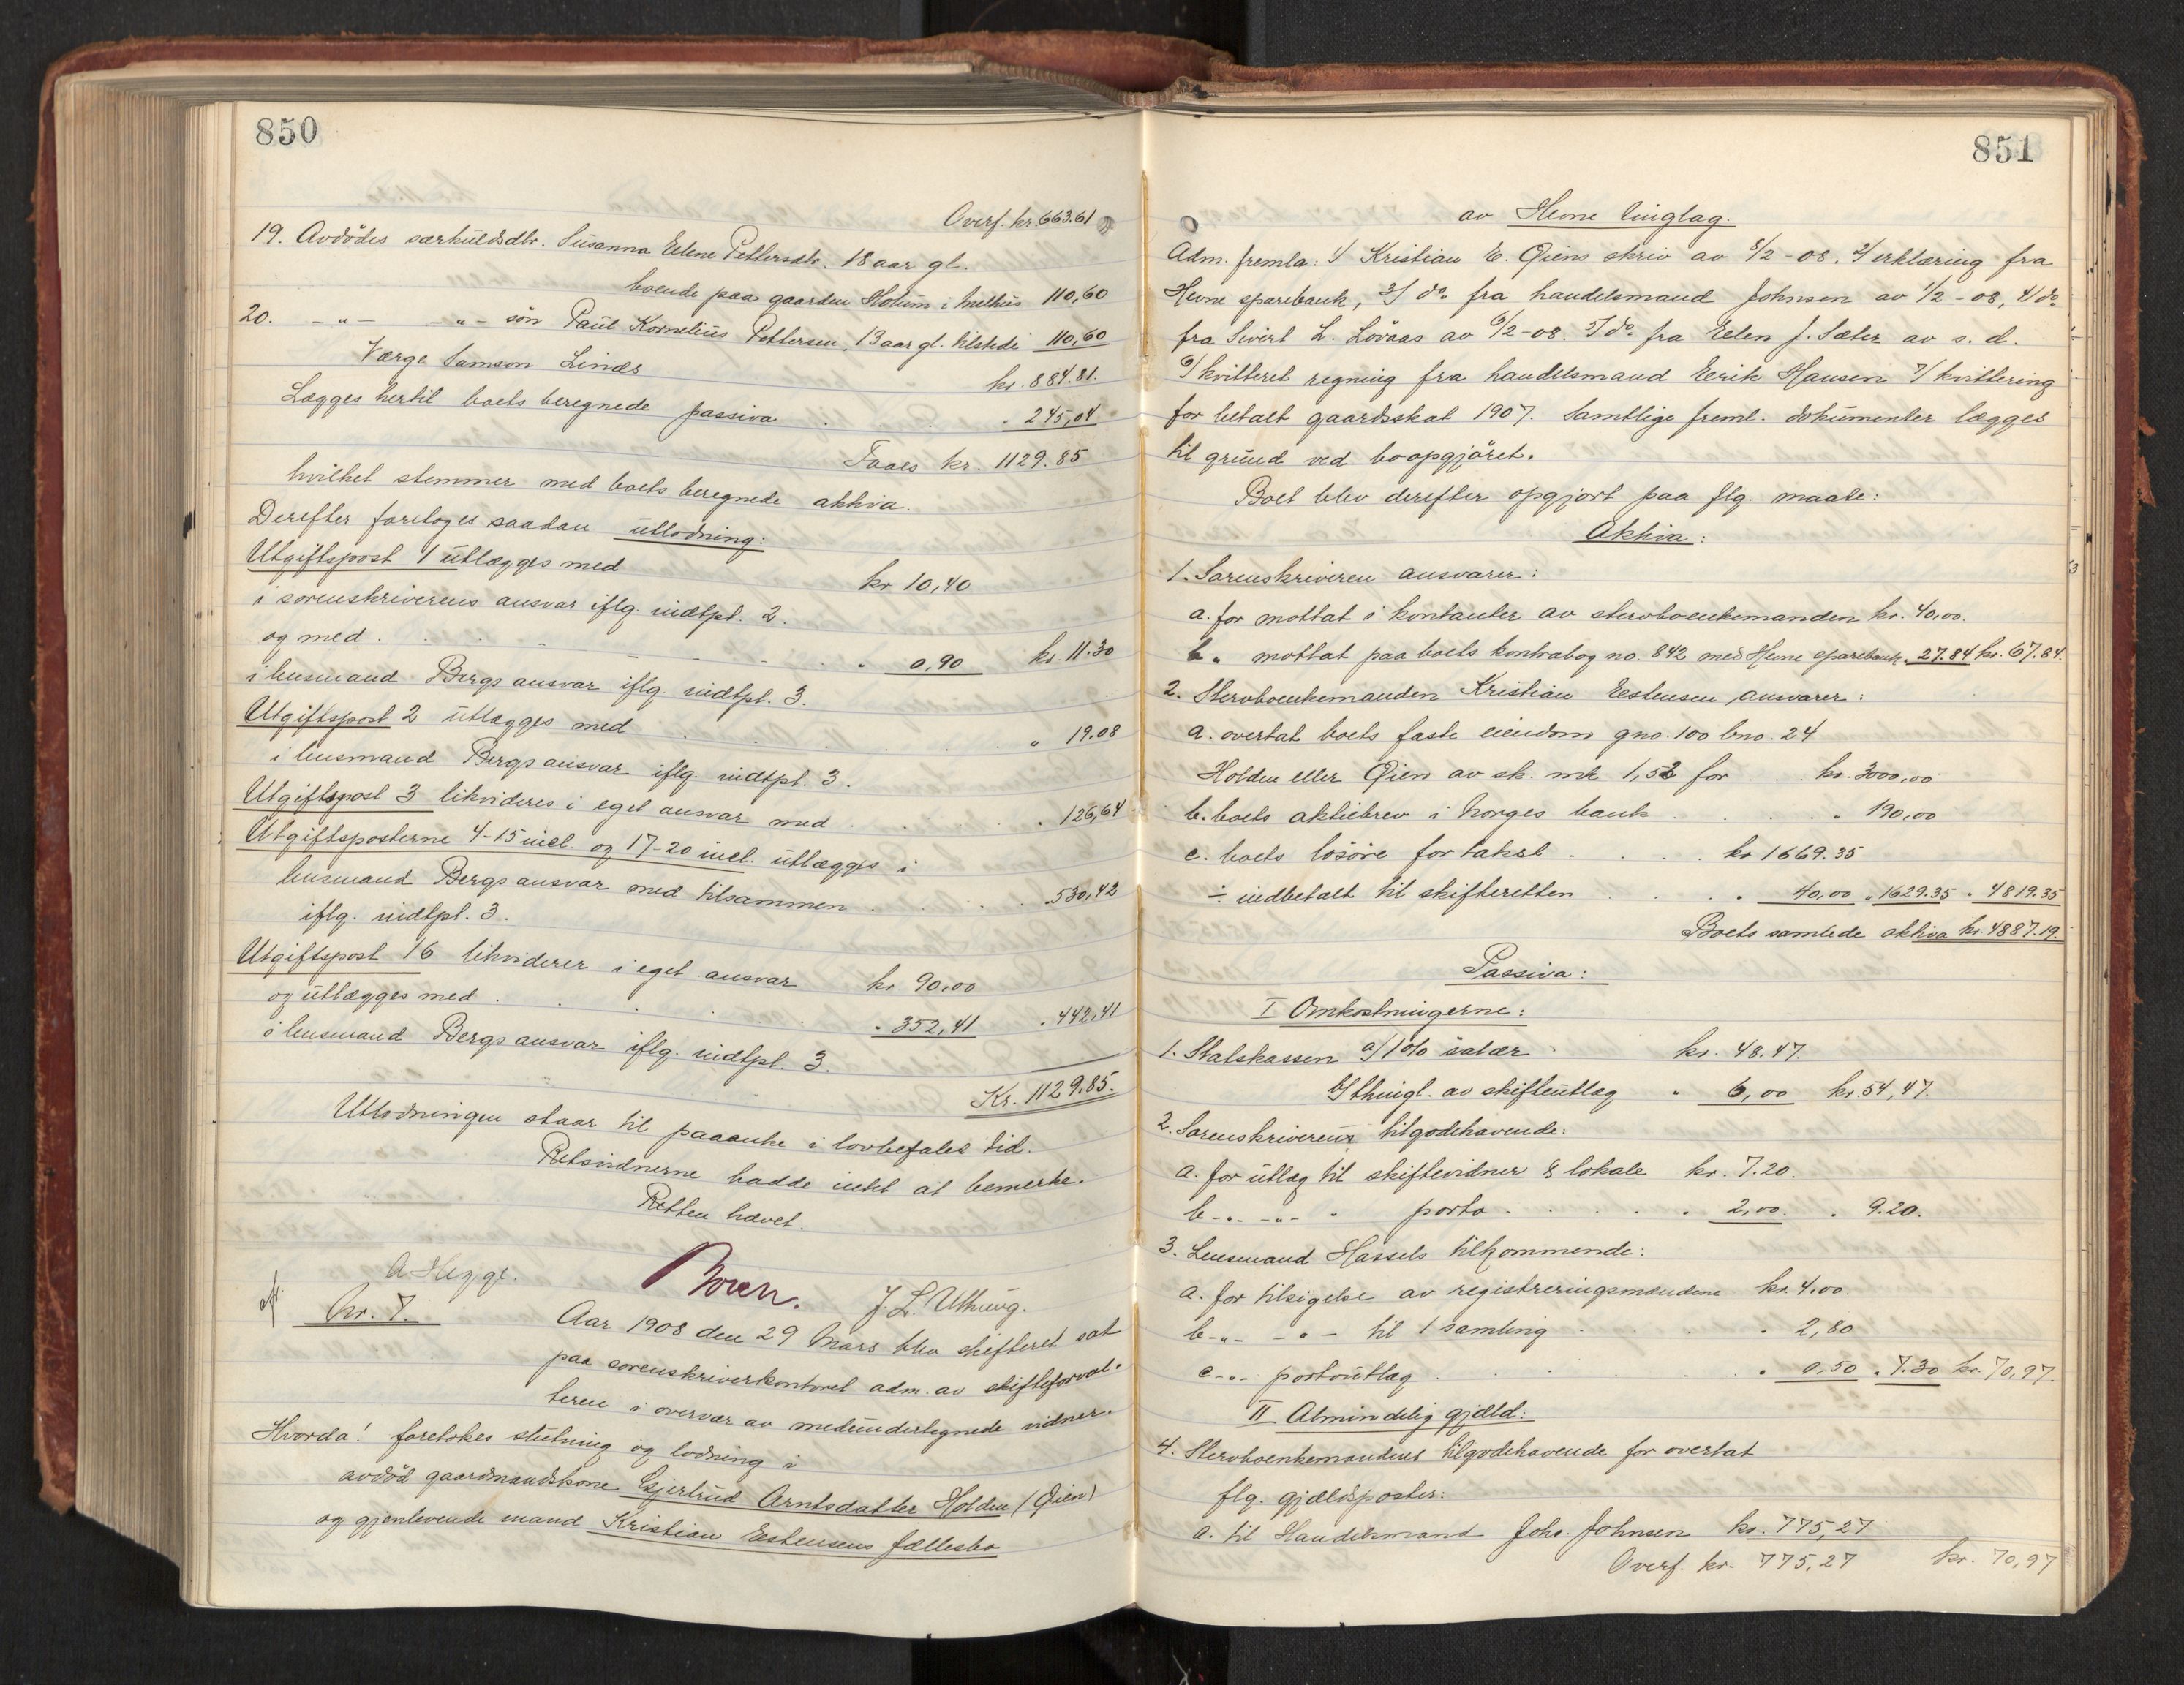 850
Overf. kr. 663.61
19. Avdödes særkuldsdtr. Susanna Elene Pettersdtr. 18 aar gl.
boende paa gaarden Holum i Melhus 110,60
20. -"- -"- sön Paul Kornelius Pettersen, 13 aar gl. tilstede 110,60
Værge Samson Linds
kr. 884.81.
Lægges hertil boets beregnede passiva . . . . 245,04
Faaes kr. 1129.85
hvilket stemmer med boets beregnede aktiva.
Derefter foretoges saadan utlodning:
Utgiftspost 1 utlægges med kr 10,40
i sorenskriverens ansvar iflg. indtpt. 2.
og med . . . . " 0,90 kr. 11.30
i lensmand Bergs ansvar iflg indtpt. 3.
Utgiftspost 2 utlægges med . . . . " 19.08
i lensmand Bergs ansvar iflg. indtpt. 3.
Utgiftspost 3 likvideres i eget ansvar med . . . . " 126,64
Utgiftsposterne 4-15 incl. og 17-20 incl. utlægges i
lensmand Bergs ansvar med tilsammen . . . . " 530,42
iflg. indtpt. 3.
Utgiftspost 16 likviderer i eget ansvar kr 90,00
og utlægges med . . . . " 352,41 " 442,41
i lensmand Bergs ansvar iflg. indtpt. 3.
Kr. 1129.85.
Utlodningen staar til paaanke i lovbefalet tid.
Retsvidnerne hadde intet at bemerke.
Retten hævet.
A. Hegge. Boven. J. L. Uthung.
Nr. 7. Aar 1908 den 29 Mars blev skifteret sat
paa sorenskriverkontoret adm. av skifteforval-
teren i overvær av medundertegnede vidner.
Hvorda! foretokes slutning og lodning i
avdöd gaardmandskone Gjertrud Arntsdatter Holden (Öien)
og gjenlevende mand Kristian Estensens fællesbo
851
av Hevne tinglag.
Adm. fremla: 1/ Kristian E. Öiens skriv av 8/2-08. 2/ erklæring fra
Hevne sparebank, 3/ do. fra handelsmand Johnsen av 1/2-08, 4/ do.
fra Sivert L. Lövaas av 6/2-08. 5/ do. fra Elen J. Sæter av s. d.
6/ kvitteret regning fra handelsmand Eerik Hansen 7/ kvittering
for betalt gaardsskat 1907. Samtlige freml. dokumenter lægges
til grund ved boopgjöret.
Boet blev derefter opgjort paa flg. maate:
Aktiva:
1. Sorenskriveren ansvarer:
a. for mottat i kontanter av stervboenkemanden kr. 40,00.
b " mottat paa boets kontrabog no. 842 med Hevne sparebank " 27.84 kr. 67.84.
2. Stervboenkemanden Kristian Eestensen ansvarer:
a. overtat boets faste eiendom gno. 100 bno. 24
Holden eller Öien av sk. mk 1,52 for . . kr. 3000,00
b. boets aktiebrev i Norges bank . . . . " 190,00
c. boets lösöre for takst . . . . kr 1669.35
÷ indbetalt til skifteretten . . . . " 40,00 " 1629.35 " 4819.35
Boets samlede aktiva kr. 4887.19.
Passiva:
I Omkostningerne:
1. Statskassen a/ 1% salær . kr. 48.47.
b/ thingl. av skifteutlæg " 6,00 kr. 54,47.
2. Sorenskriverens tilgodehavende:
a. for utlæg til skiftevidner & lokale kr. 7.20.
b -"- -"- " porto . . . . " 2,00. " 9.20.
3. Lensmand Hassels tilkommende:
a. for tilsigelse av registreringsmændene kr. 4.00.
b -"- -"- til 1 samling . . . . " 2,80
c -"- portoutlæg . . . . " 0,50 " 7.30 kr. 70,97.
II Almindelig gjæld:
4. Stervboenkemandens tilgodehavende for overtat
flg. gjældsposter:
a. til Handelsmand Johs. Johnsen kr. 775,27
Overf. kr. 775,27 kr. 70,97